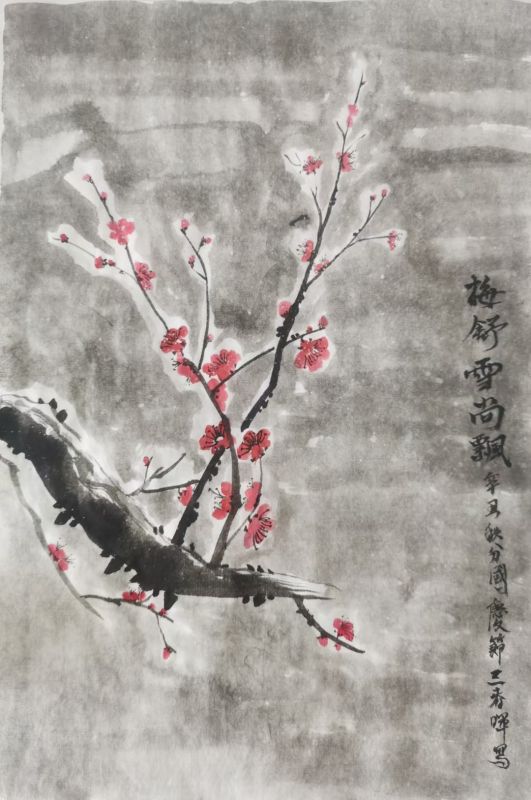 梅舒雪尚飄
辛丑秋分國慶節三香暉寫